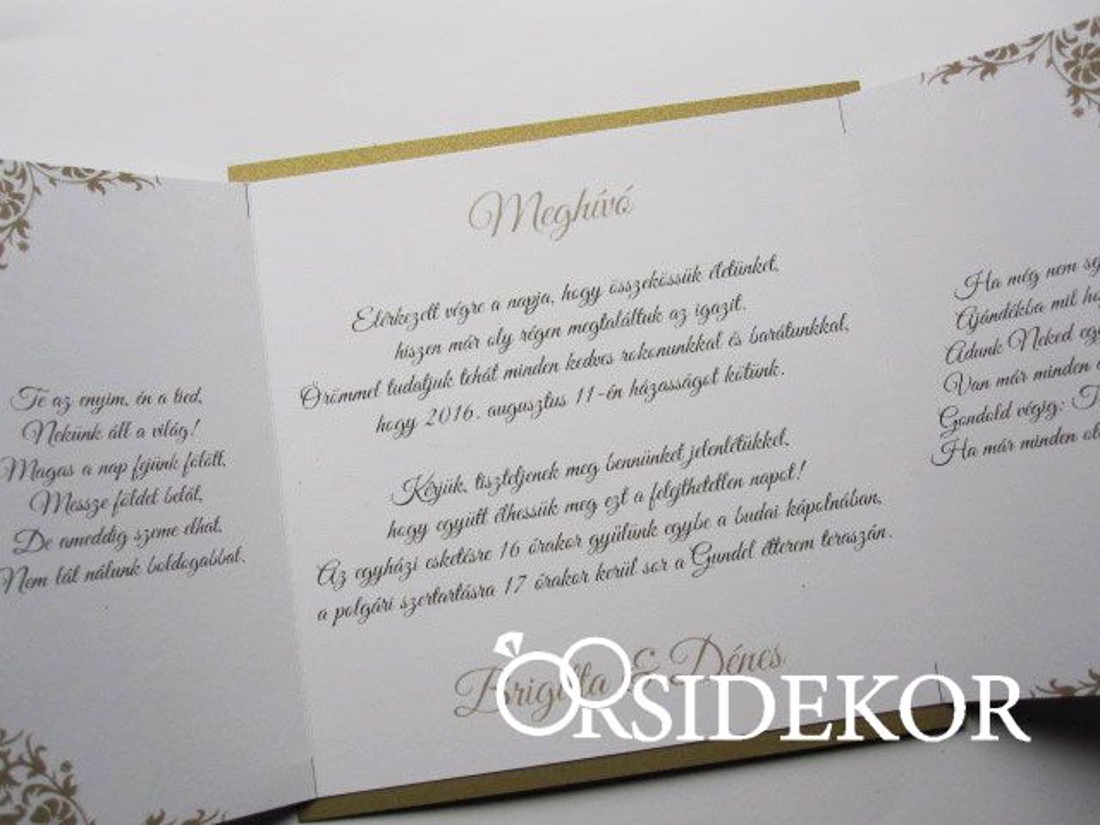 Te az enyim, én a tied,
Nekünk áll a világ!
Magas a nap fejünk fölött,
Messze földet belát,
De ameddig szeme elhat,
Nem lát nálunk boldogabbat.
Meghívó
Elérkezett végre a napja, hogy összekössük életünket,
hiszen már oly régen megtaláltuk az igazit.
Örömmel tudatjuk tehát minden kedves rokonunkkal és barátunkkal,
hogy 2016. augusztus 11-én házasságot kötünk.
Kérjük, tiszteljenek meg bennünket jelenlétükkel,
hogy együtt élhessük meg ezt a felejthetetlen napot!
Az egyházi esketésre 16 órakor gyülünk egybe a budai kápolnában,
a polgári szertartásra 17 órakor kerül sor a Gundel étterem teraszán.
Brigitta & Dénes
ORSIDEKOR
Ha még nem
Ajándékba mit
Adunk Neked
Van már minden
Gondold végig:
Ha már minden